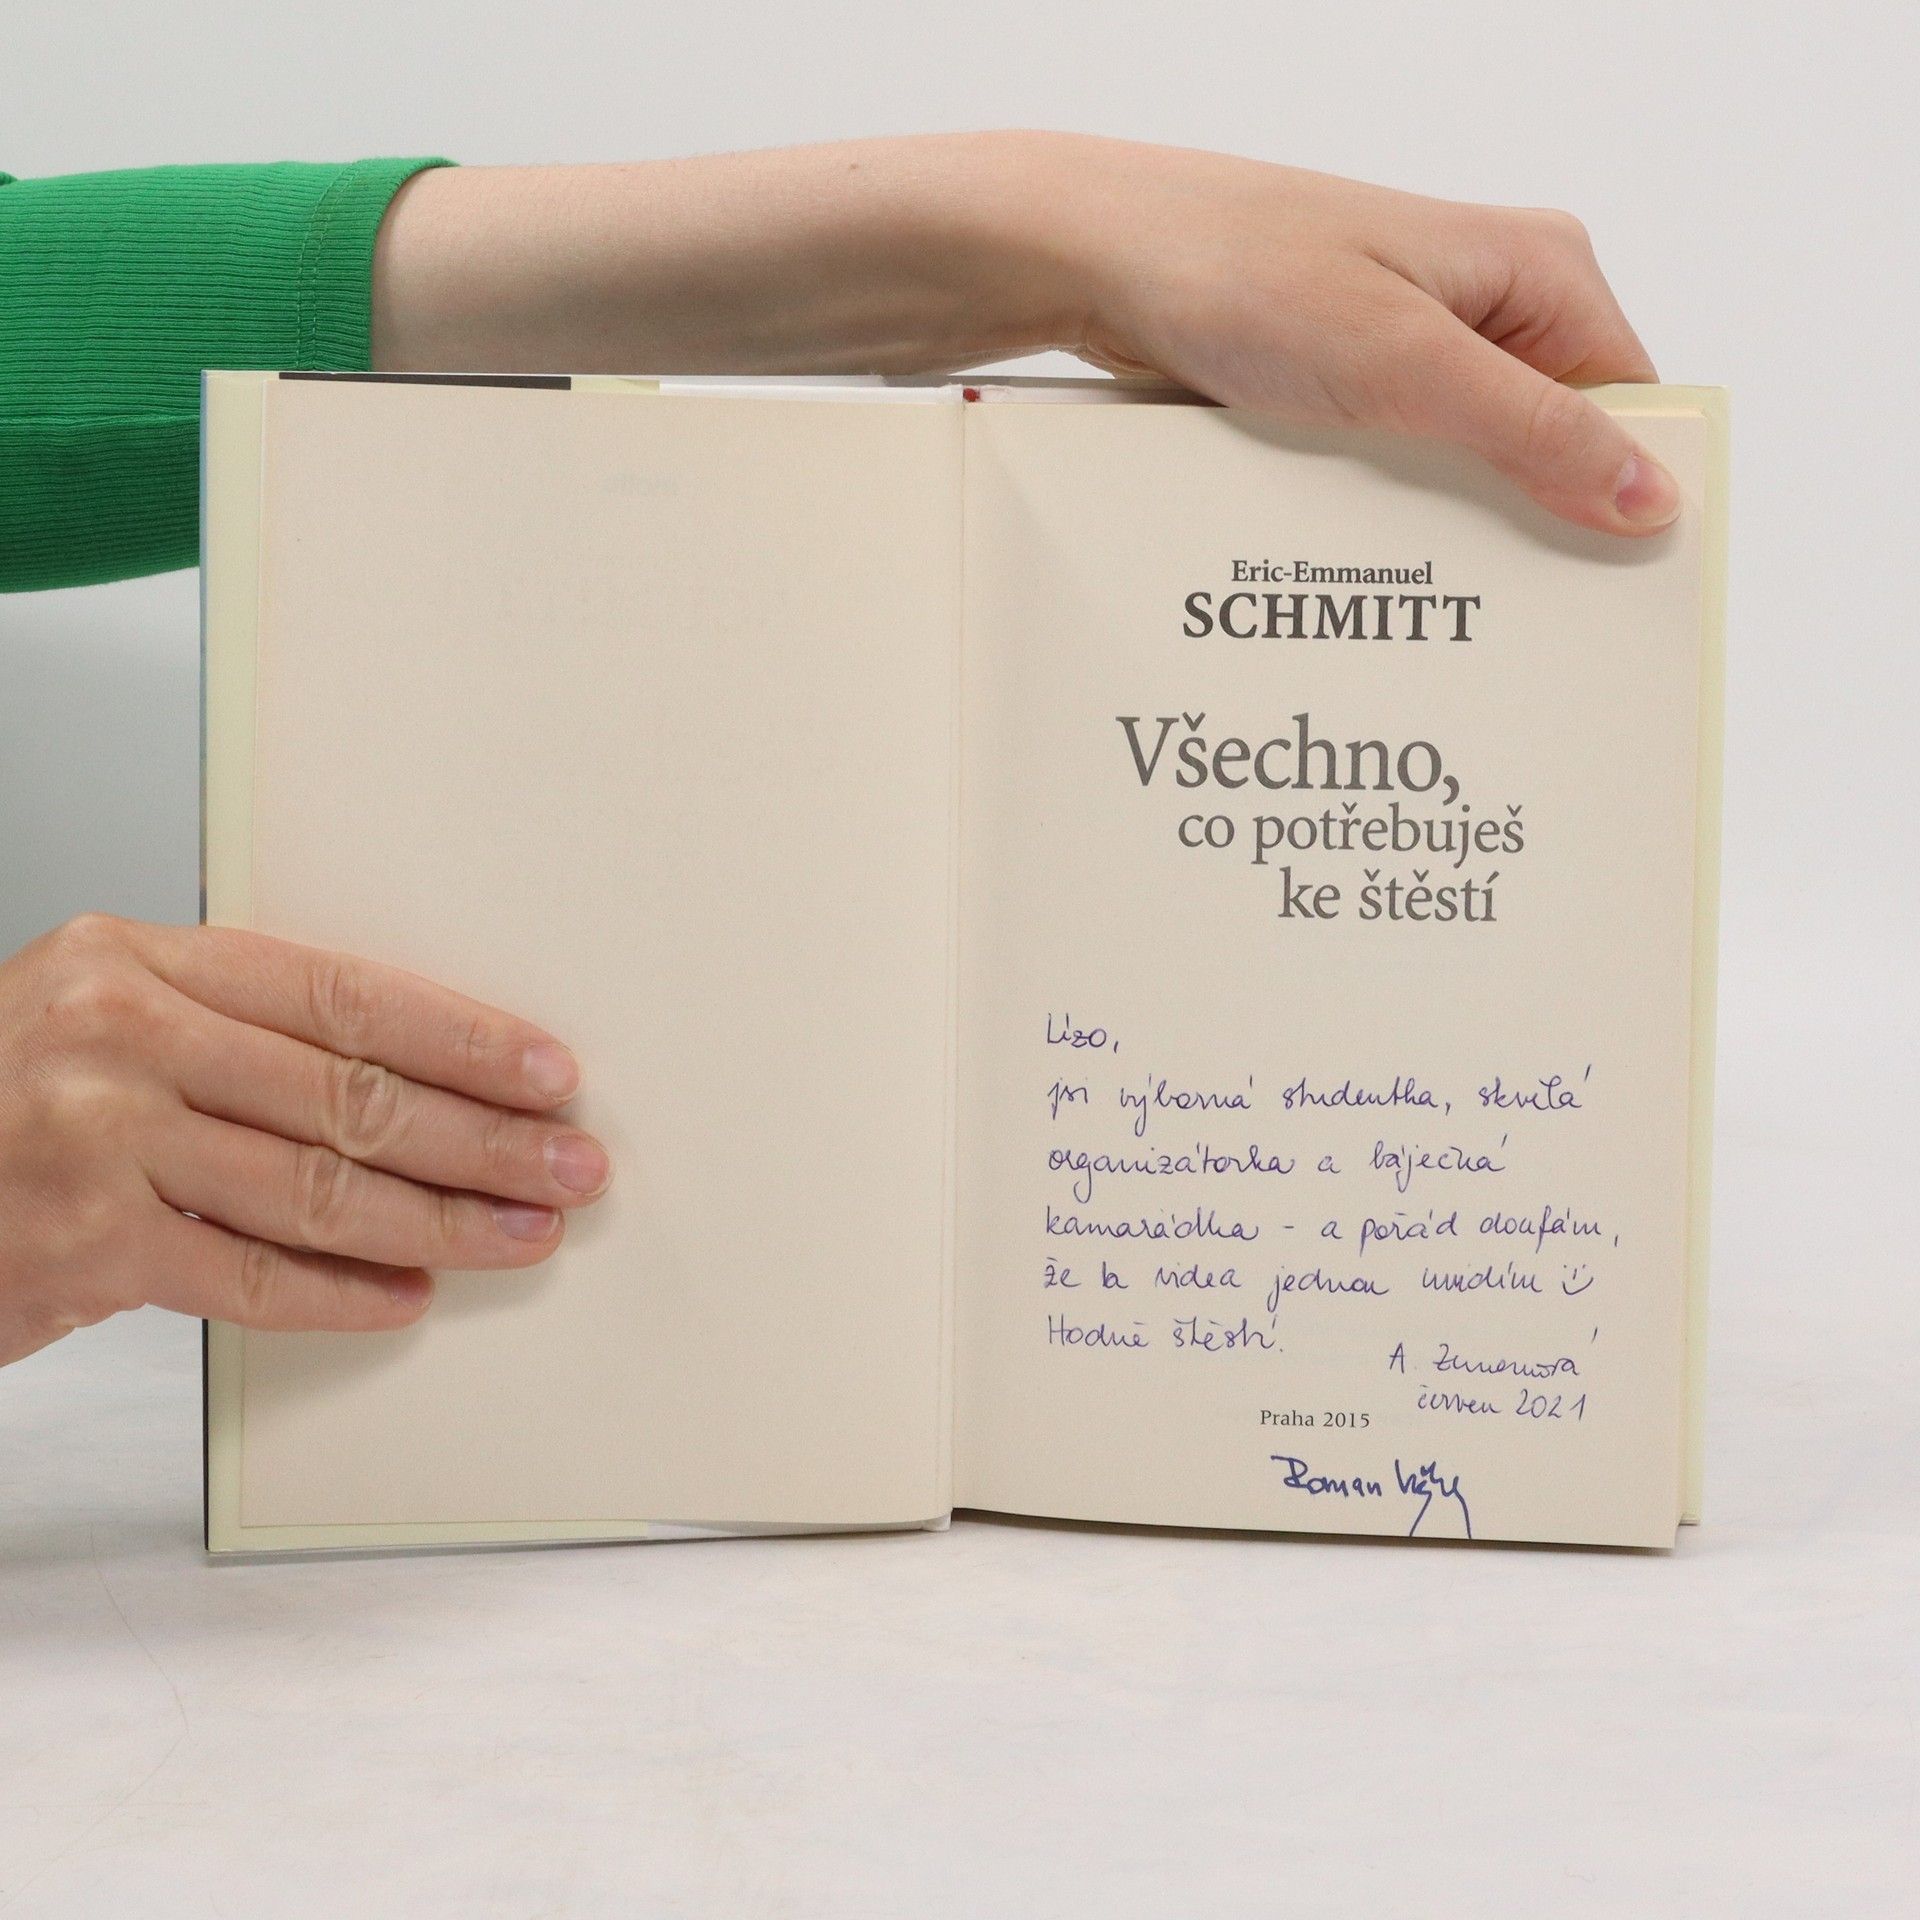 Eric-Emmanuel
SCHMITT
Všechno,
co potřebuješ
ke štěstí
Lízo,
jsi výborná studentka, skvělá
organizátorka a báječná
kamarádka - a pořád doufám,
že ta videa jednou uvidím
Hodně štěstí.
A.
červen 2021
Praha 2015
Roman